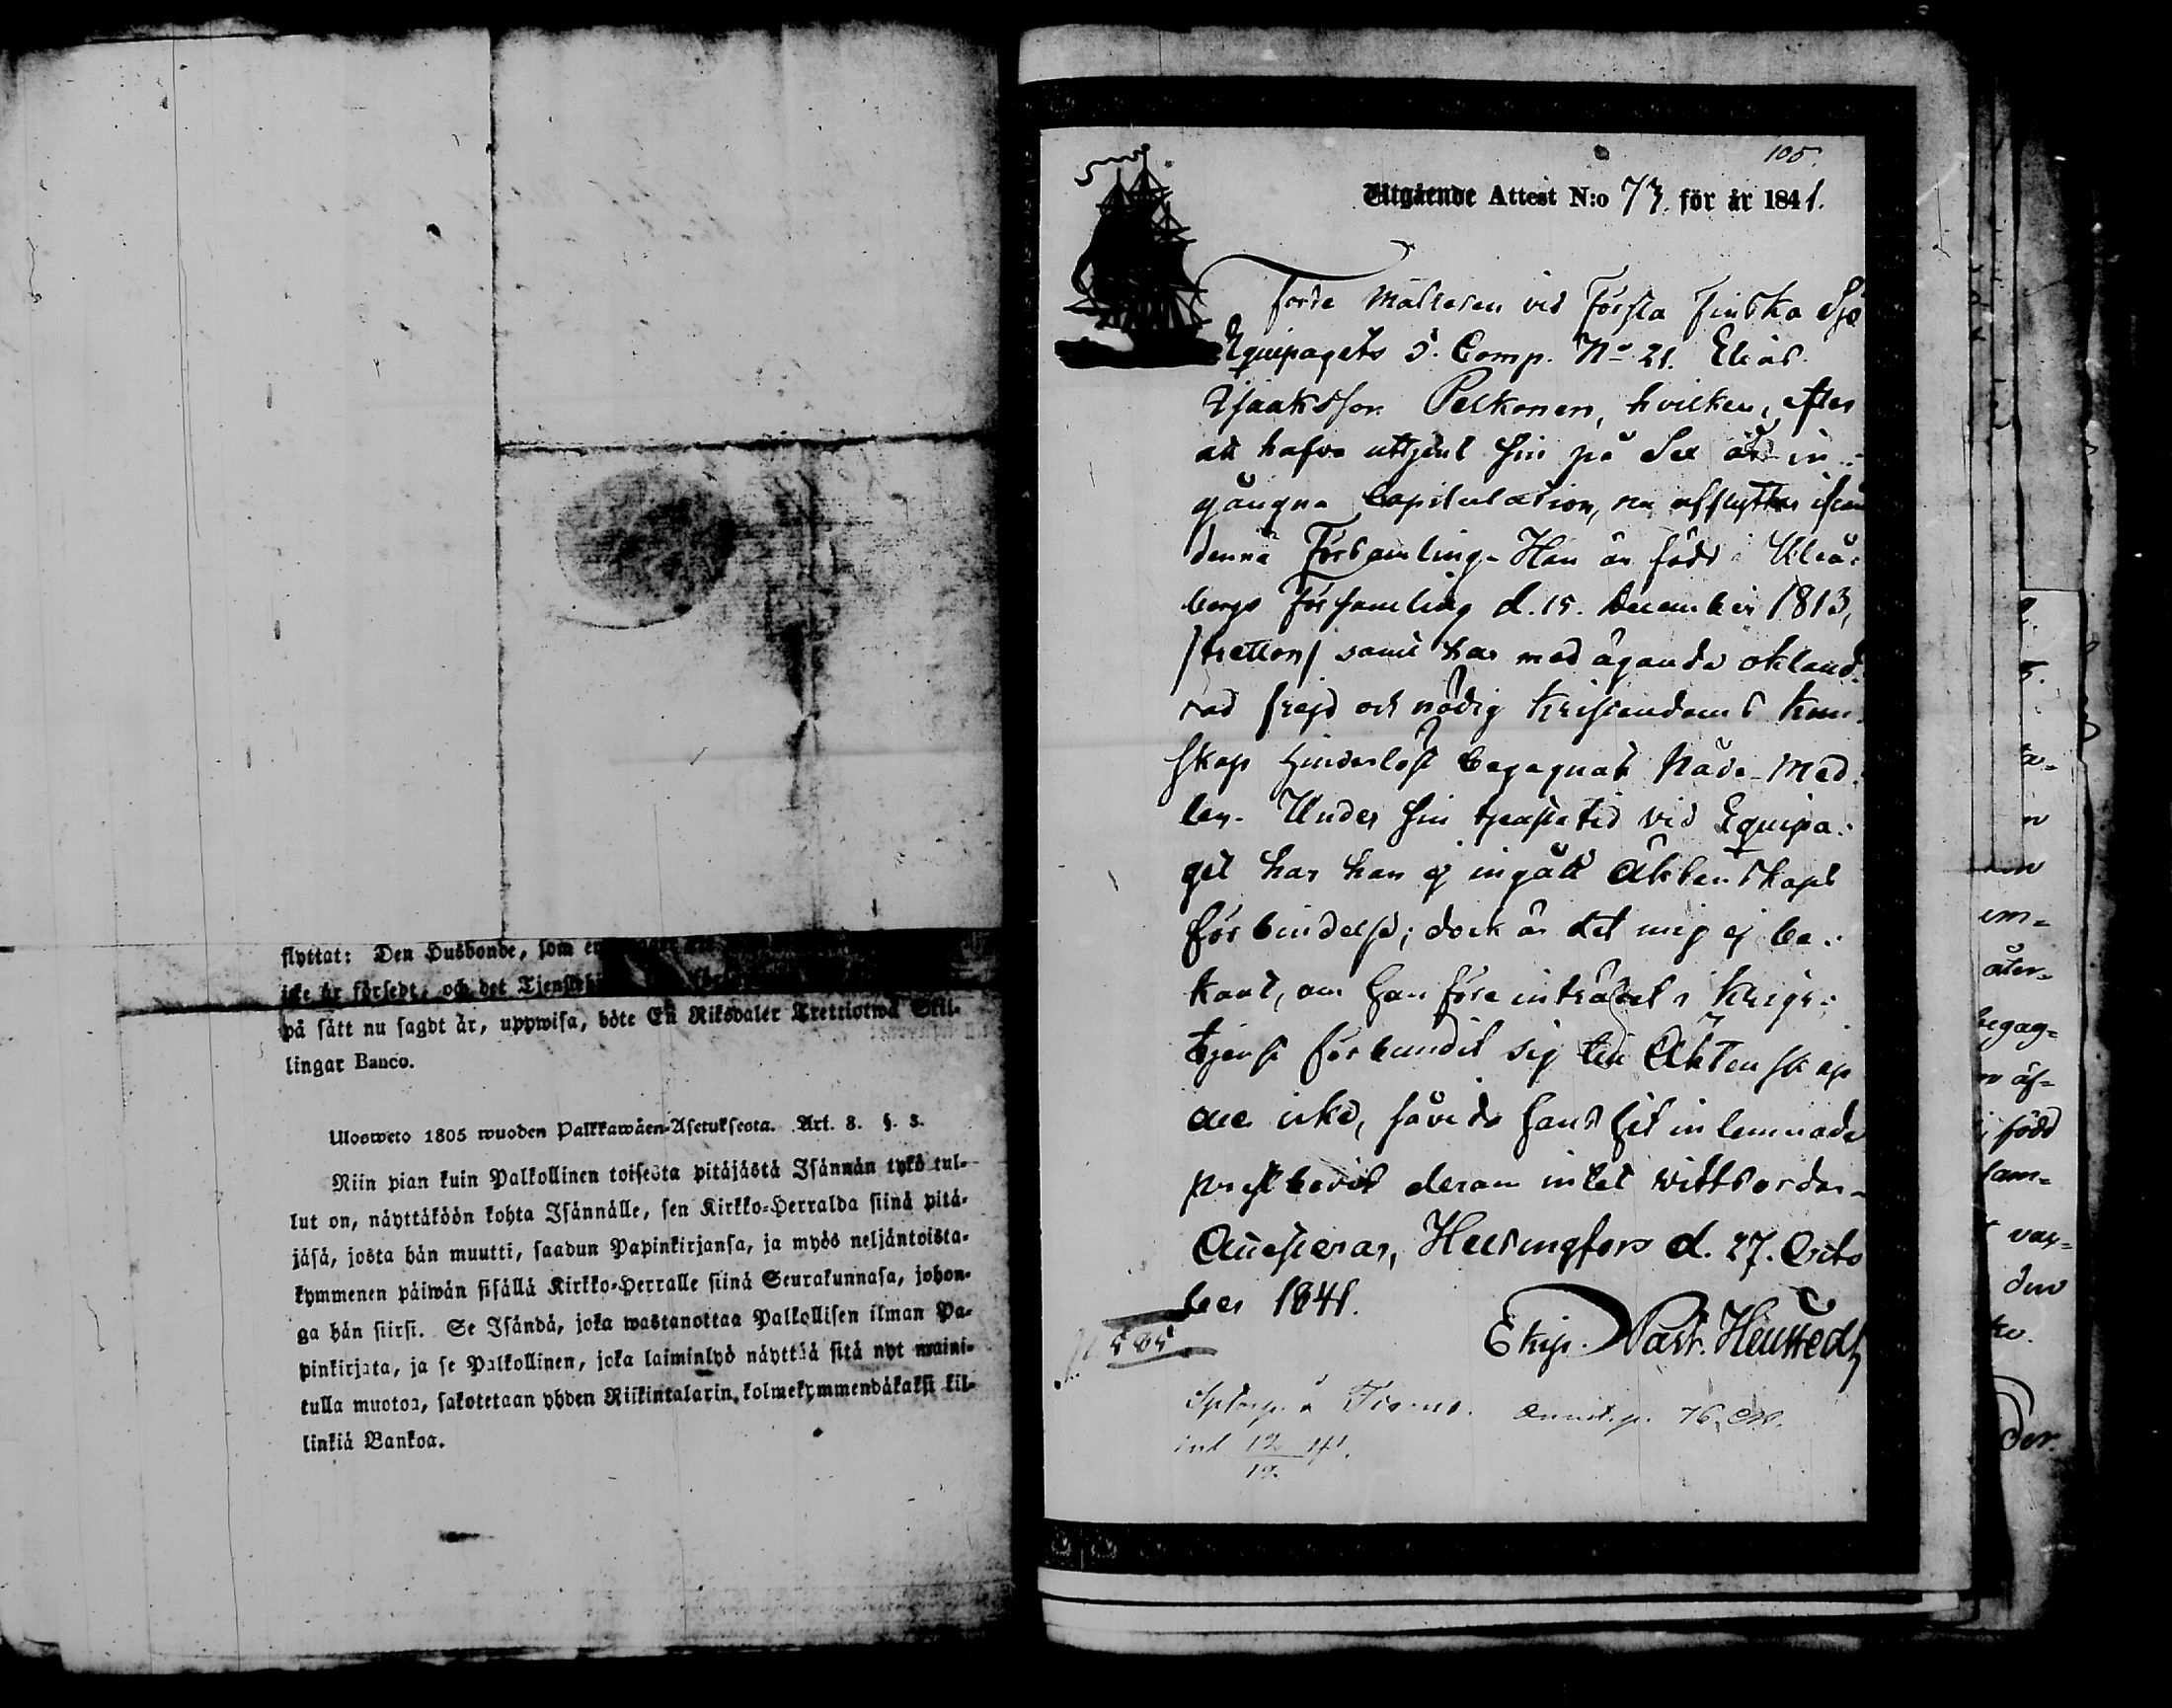 flyttat: Den Husbonde, som en
icke är försedt, och det Tjenstehj
på sätt nu sagdt är, uppwisa, böte En Riksdaler Trettiotwå Skil-
lingar Banco.
Ulosweto 1805 wuoden Palkkawäen-Asetuksesta. Art. 8. §. 3.
Niin pian kuin Palkollinen toisesta pitäjästä Isännän tykö tul-
lut on, näyttäköön kohta Isännälle, sen Kirkko-Herralda siinä pitä-
jäsä, josta hän muutti, saadun Papinkirjansa, ja myös neljäntoista-
kymmenen päiwän sisällä Kirkko-Herralle siinä Seurakunnasa, johon-
ga hän siirsi. Se Isändä, joka wastanottaa Palkollisen ilman Pa-
pinkirjata, ja se Palkollinen, joka laiminlyö näyttää sitä nyt maini-
tulla muotoa, sakotetaan yhden Riikintalarin kolmekymmendäkaksi kil-
linkiä Bankoa.
105.
Utgående Attest N:o 73. för år 1841.
Förre Matrosen vid Första Finska Sjö
Equipagets 5. Comp. No 21. Elias
Isaaksson Pelkonen, hvilken, efter
att hafva uttjent sin på Sex år in-
gångna Capitulation, nu afflyttar ifrån
denna Församling. Han är född i Uleå-
borgs Församling d. 15. December 1813,
/tretton/ samt har med ägande okland-
rad frejd och nödig Kristendoms kun-
skap hinderlöst begagnat Nåde-Med-
len. Under sin tjenstetid vid Equipa-
get har han ej ingått Äktenskaps
förbindelse; dock är det mig ej be-
kant, om han före inträdet i Krigs-
tjenst förbundit sig till Äktenskap
eller icke, såvida hans hit inlemnade
prestbevis derom intet vittsordar.
Attesteras, Helsingfors d. 27. Octo
ber 1841.
Ekip. Past. Heurstedt
505
ind 12/12 41.